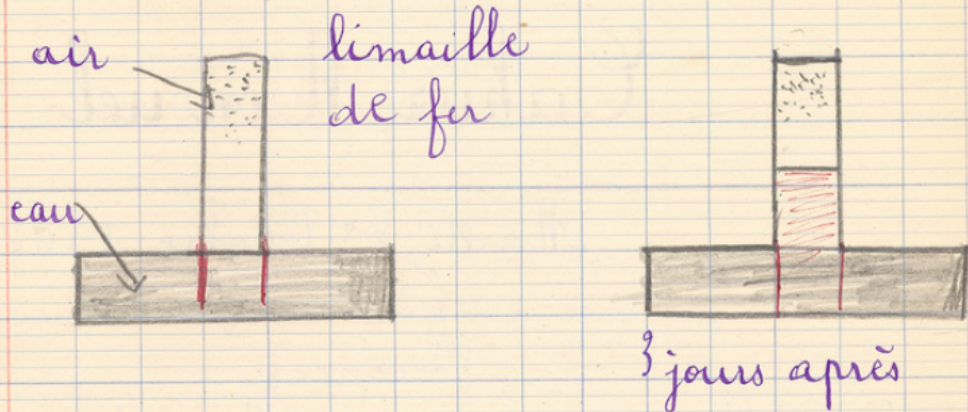 air
limaille
de fer
eau
3 jours après